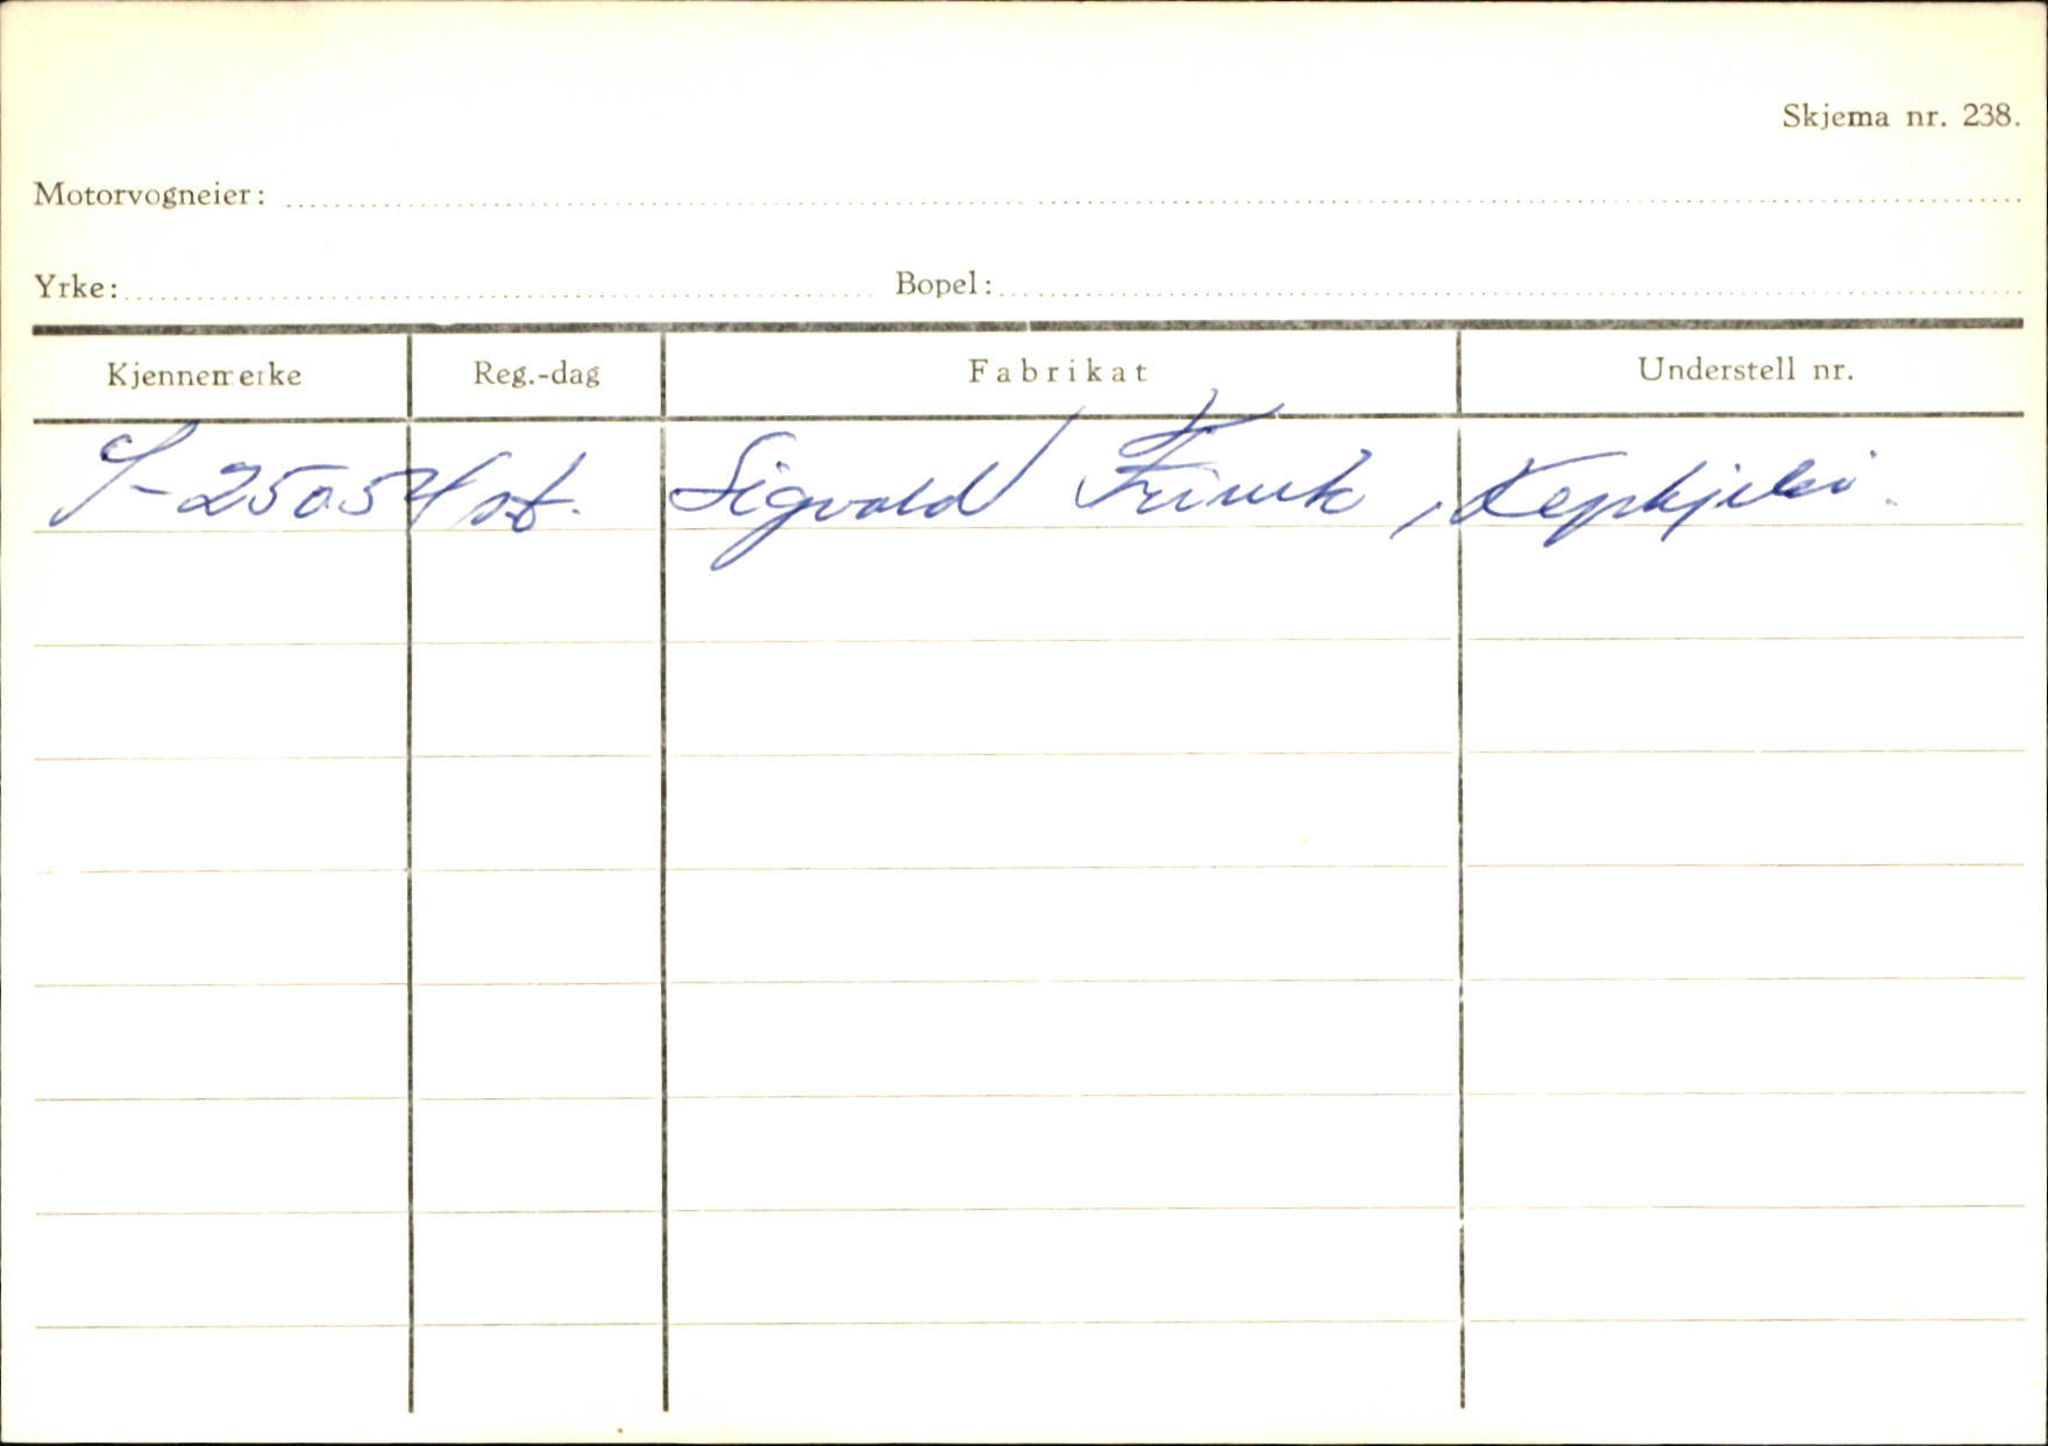 Skjema nr. 238.
Motorvogneier:
Yrke: Bopel:
Kjennemerke Reg.-dag Fabrikat Understell nr.
S-25054 st. Sigvald Frivik,